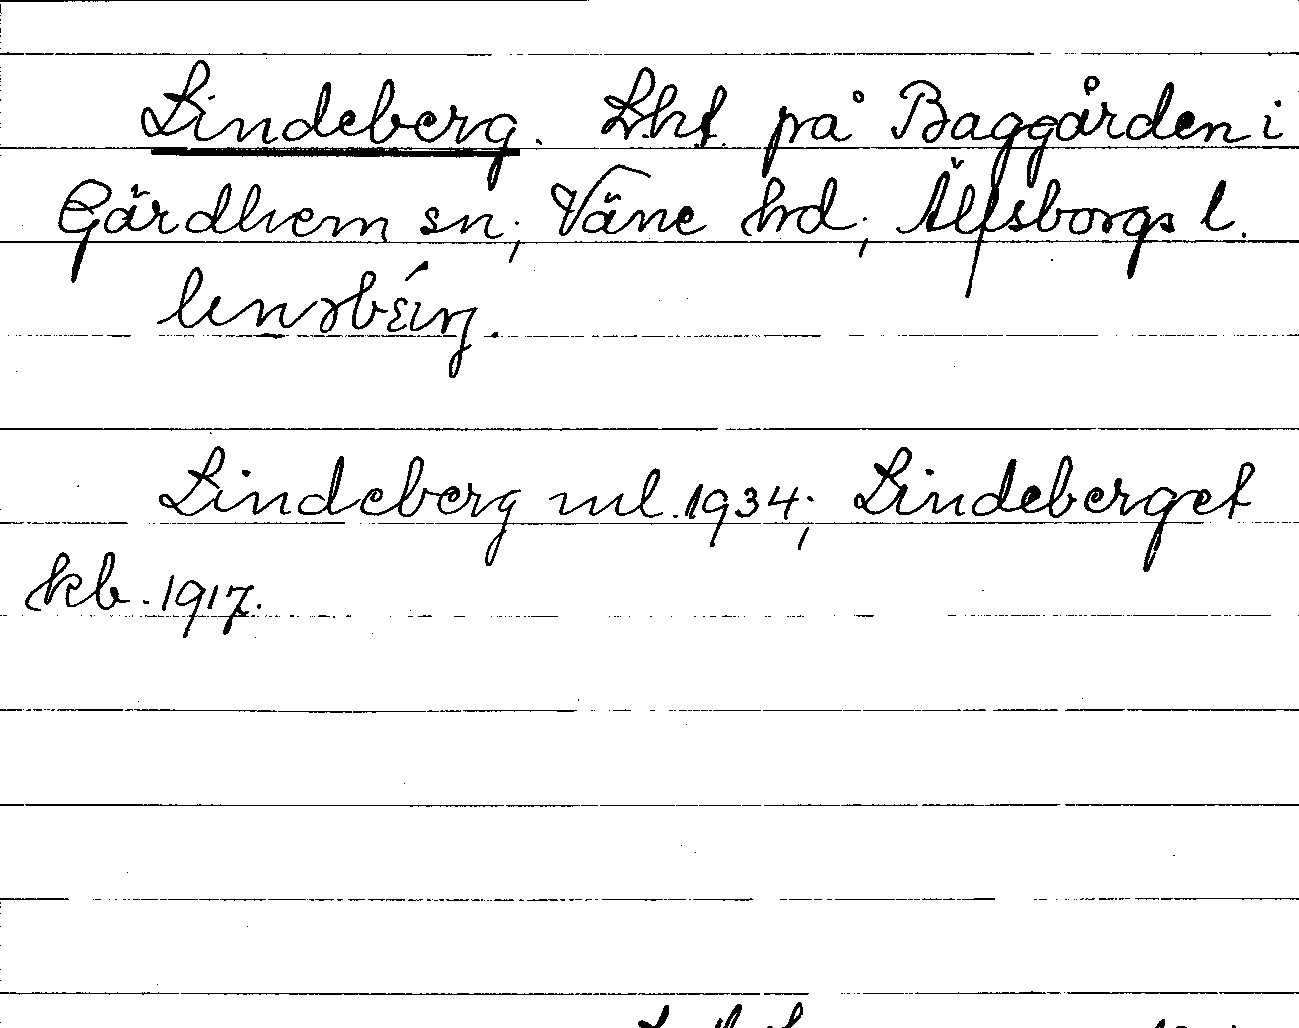 Lindeberg. Lht. på Baggården i
Gärdhem sn; Väne hd; Älfsborgs l.
Lindeberg ml. 1934; Lindeberget
kb. 1917.